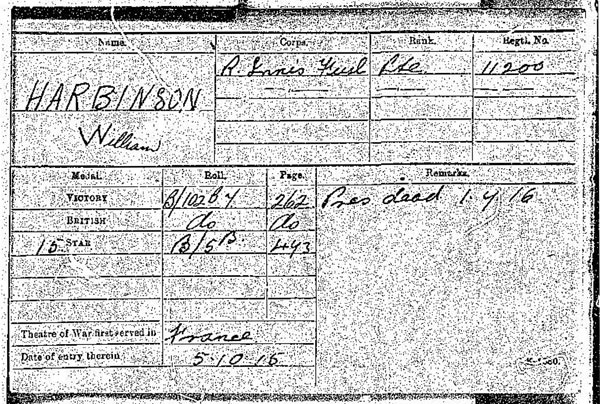 Name. Corps. Rank. Regtl. No.
HARBINSON R. Innis Fusl Pte. 11200
William
Medal. Roll. Page. Remarks.
VICTORY B/102 B 4 262 Pres dead 1.7.16
BRITISH do do
15 STAR B/5 B. 493
Theatre of War first served in France
Date of entry therein 5.10.15